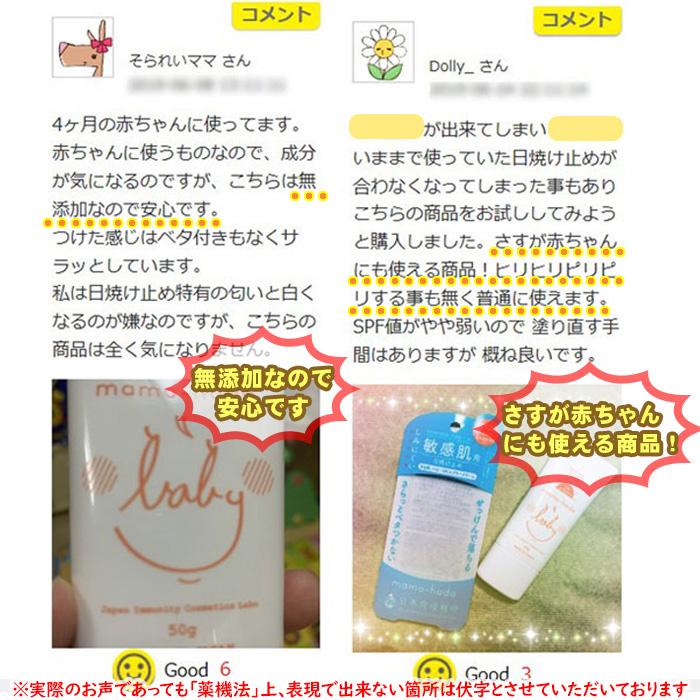 コメント
そられいママ さん
4ヶ月の赤ちゃんに使ってます。
赤ちゃんに使うものなので、成分
が気になるのですが、こちらは無
添加なので安心です。
つけた感じはベタ付きもなくサ
ラッとしています。
私は日焼け止め特有の匂いと白く
なるのが嫌なのですが、こちらの
商品は全く気になりません。
無添加なので
安心です
baby
Japan Immunity Cosmetics Labo
50g
Good 6
コメント
Dolly_ さん
が出来てしまい
いままで使っていた日焼け止めが
合わなくなってしまった事もあり
こちらの商品をお試ししてみよう
と購入しました。さすが赤ちゃん
にも使える商品！ヒリヒリピリピ
リする事も無く普通に使えます。
SPF値がやや弱いので 塗り直す手
間はありますが 概ね良いです。
さすが赤ちゃん
にも使える商品！
敏感肌
せっけんで落ちる
さらっとベタつかない
mama-hada
baby
Good 3
※実際のお声であっても「薬機法」上、表現で出来ない箇所は伏字とさせていただいております